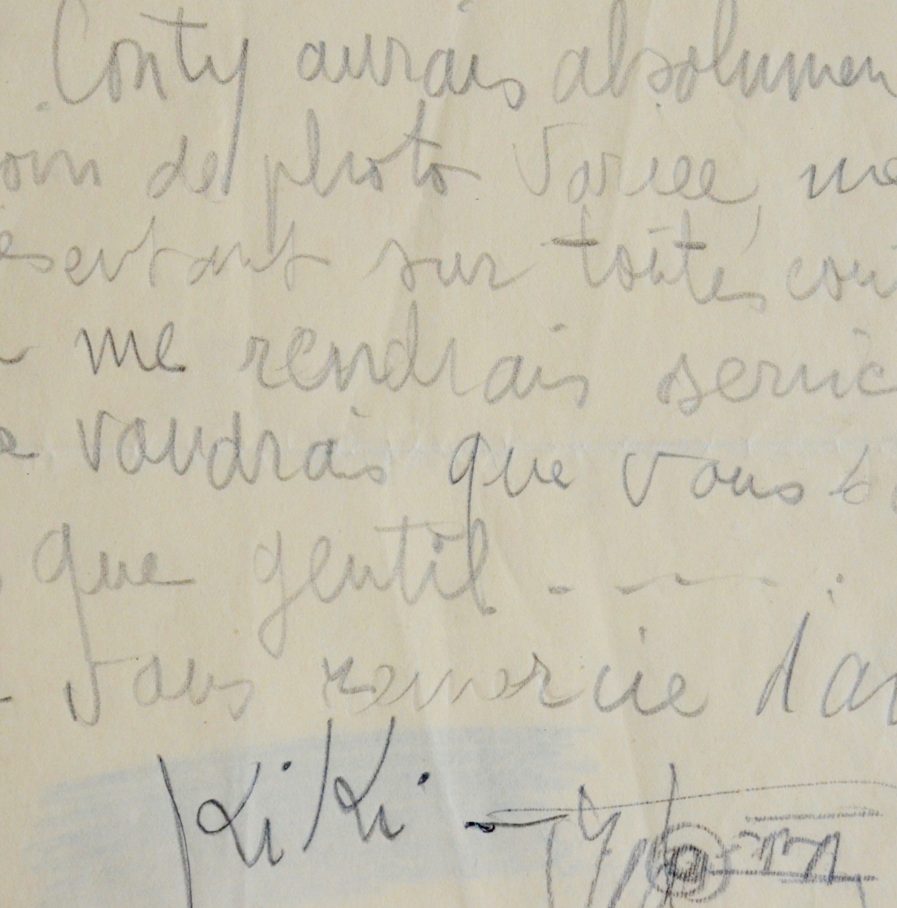 Conty aurais absolumen
oin de photo variee, me
esentant sur toutes cou
me rendrais servic
voudrais que vous
que gentil - - - - .
vous remercie d'av
KiKi -